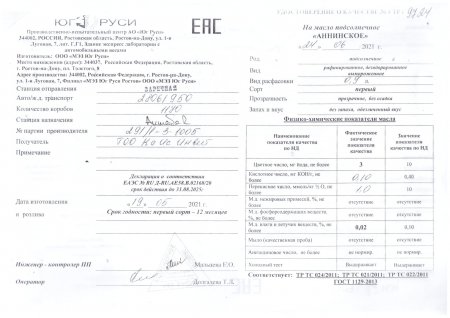 ЮГ РУСИ
ЕАС
УДОСТОВЕРЕНИЕ О КАЧЕСТВЕ № 9784
Производственно-испытательный центр АО «Юг Руси»
344002, РОССИЯ, Ростовская область, Ростов-на-Дону, ул. 1-я
Луговая, 7, лит. Г, Г1, Здание экспресс лаборатории с
автомобильными весами
Изготовитель: ООО «МЭЗ Юг Руси»
Место нахождения (адрес): 344037, Российская Федерация, Ростовская область,
г. Ростов-на-Дону, ул. Толстого, 8
Адрес производства: 344002, Российская Федерация, г. Ростов-на-Дону,
ул. 1-я Луговая, 7, Филиал ООО «МЭЗ Юг Руси»
Станция отправления ЗАРЕЧНАЯ
Авто/ж.д. транспорт 28061950
Количество коробок
Станция назначения
№ партии производителя
Получатель ТОО
Примечание
Декларация о соответствии
действует по 31.08.2025г
Дата изготовления «19» 05 2021 г.
и розлива
Срок годности: первый сорт – 12 месяцев
Инженер - контролер ПП Мальцева Е.О.
Оператор Долгалева Т.Л.
На масло подсолнечное
«АННИНСКОЕ»
06 2021 г.
Род подсолнечное
Вид рафинированное, дезодорированное
вымороженное
Вид расфасовки 0,9 л
Сорт первый
Прозрачность прозрачное, без осадка
Запах и вкус без запаха, обезличенный вкус
Физико-химические показатели масла
Наименование показателя качества по НД
Фактическое значение показателя качества
Значение показателя качества по НД
Цветное число, мг йода, не более 3 10
Кислотное число, мг КОН/г, не более 0,10 0,40
Перекисное число, ммоль/кг ½ О, не более 1,0 10
М.д. нежировых примесей, %, не более отсутствие отсутствие
М.д. фосфорсодержащих веществ, %, не более отсутствие отсутствие
М.д. влаги и летучих веществ, %, не более 0,02 0,10
Мыло (качественная проба) отсутствие отсутствие
Анизидиновое число, не более не нормир. не нормир.
Холодный тест Выдерживает Выдерживает
Соответствует: ТР ТС 024/2011; ТР ТС 021/2011; ТР ТС 022/2011
ГОСТ 1129-2013